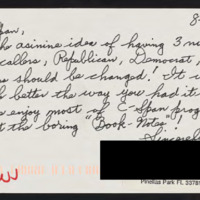 8-
Span,
he asinine idea of having 3 nu
callers, Republican, Democrat,
es should be changed! It w
h better the way you had it
enjoy most of C-Span prog
t the boring "Book-Notes"!
Sincerel
Pinellas Park FL 3378